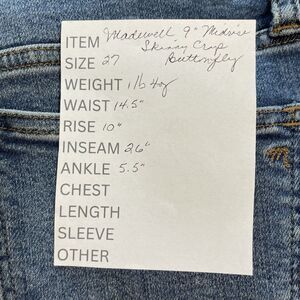 ITEM Madewell 9" Midrise
Skinny Crop
SIZE 27 Buttonfly
WEIGHT 1 lb 4oz
WAIST 14.5"
RISE 10"
INSEAM 26"
ANKLE 5.5"
CHEST
LENGTH
SLEEVE
OTHER